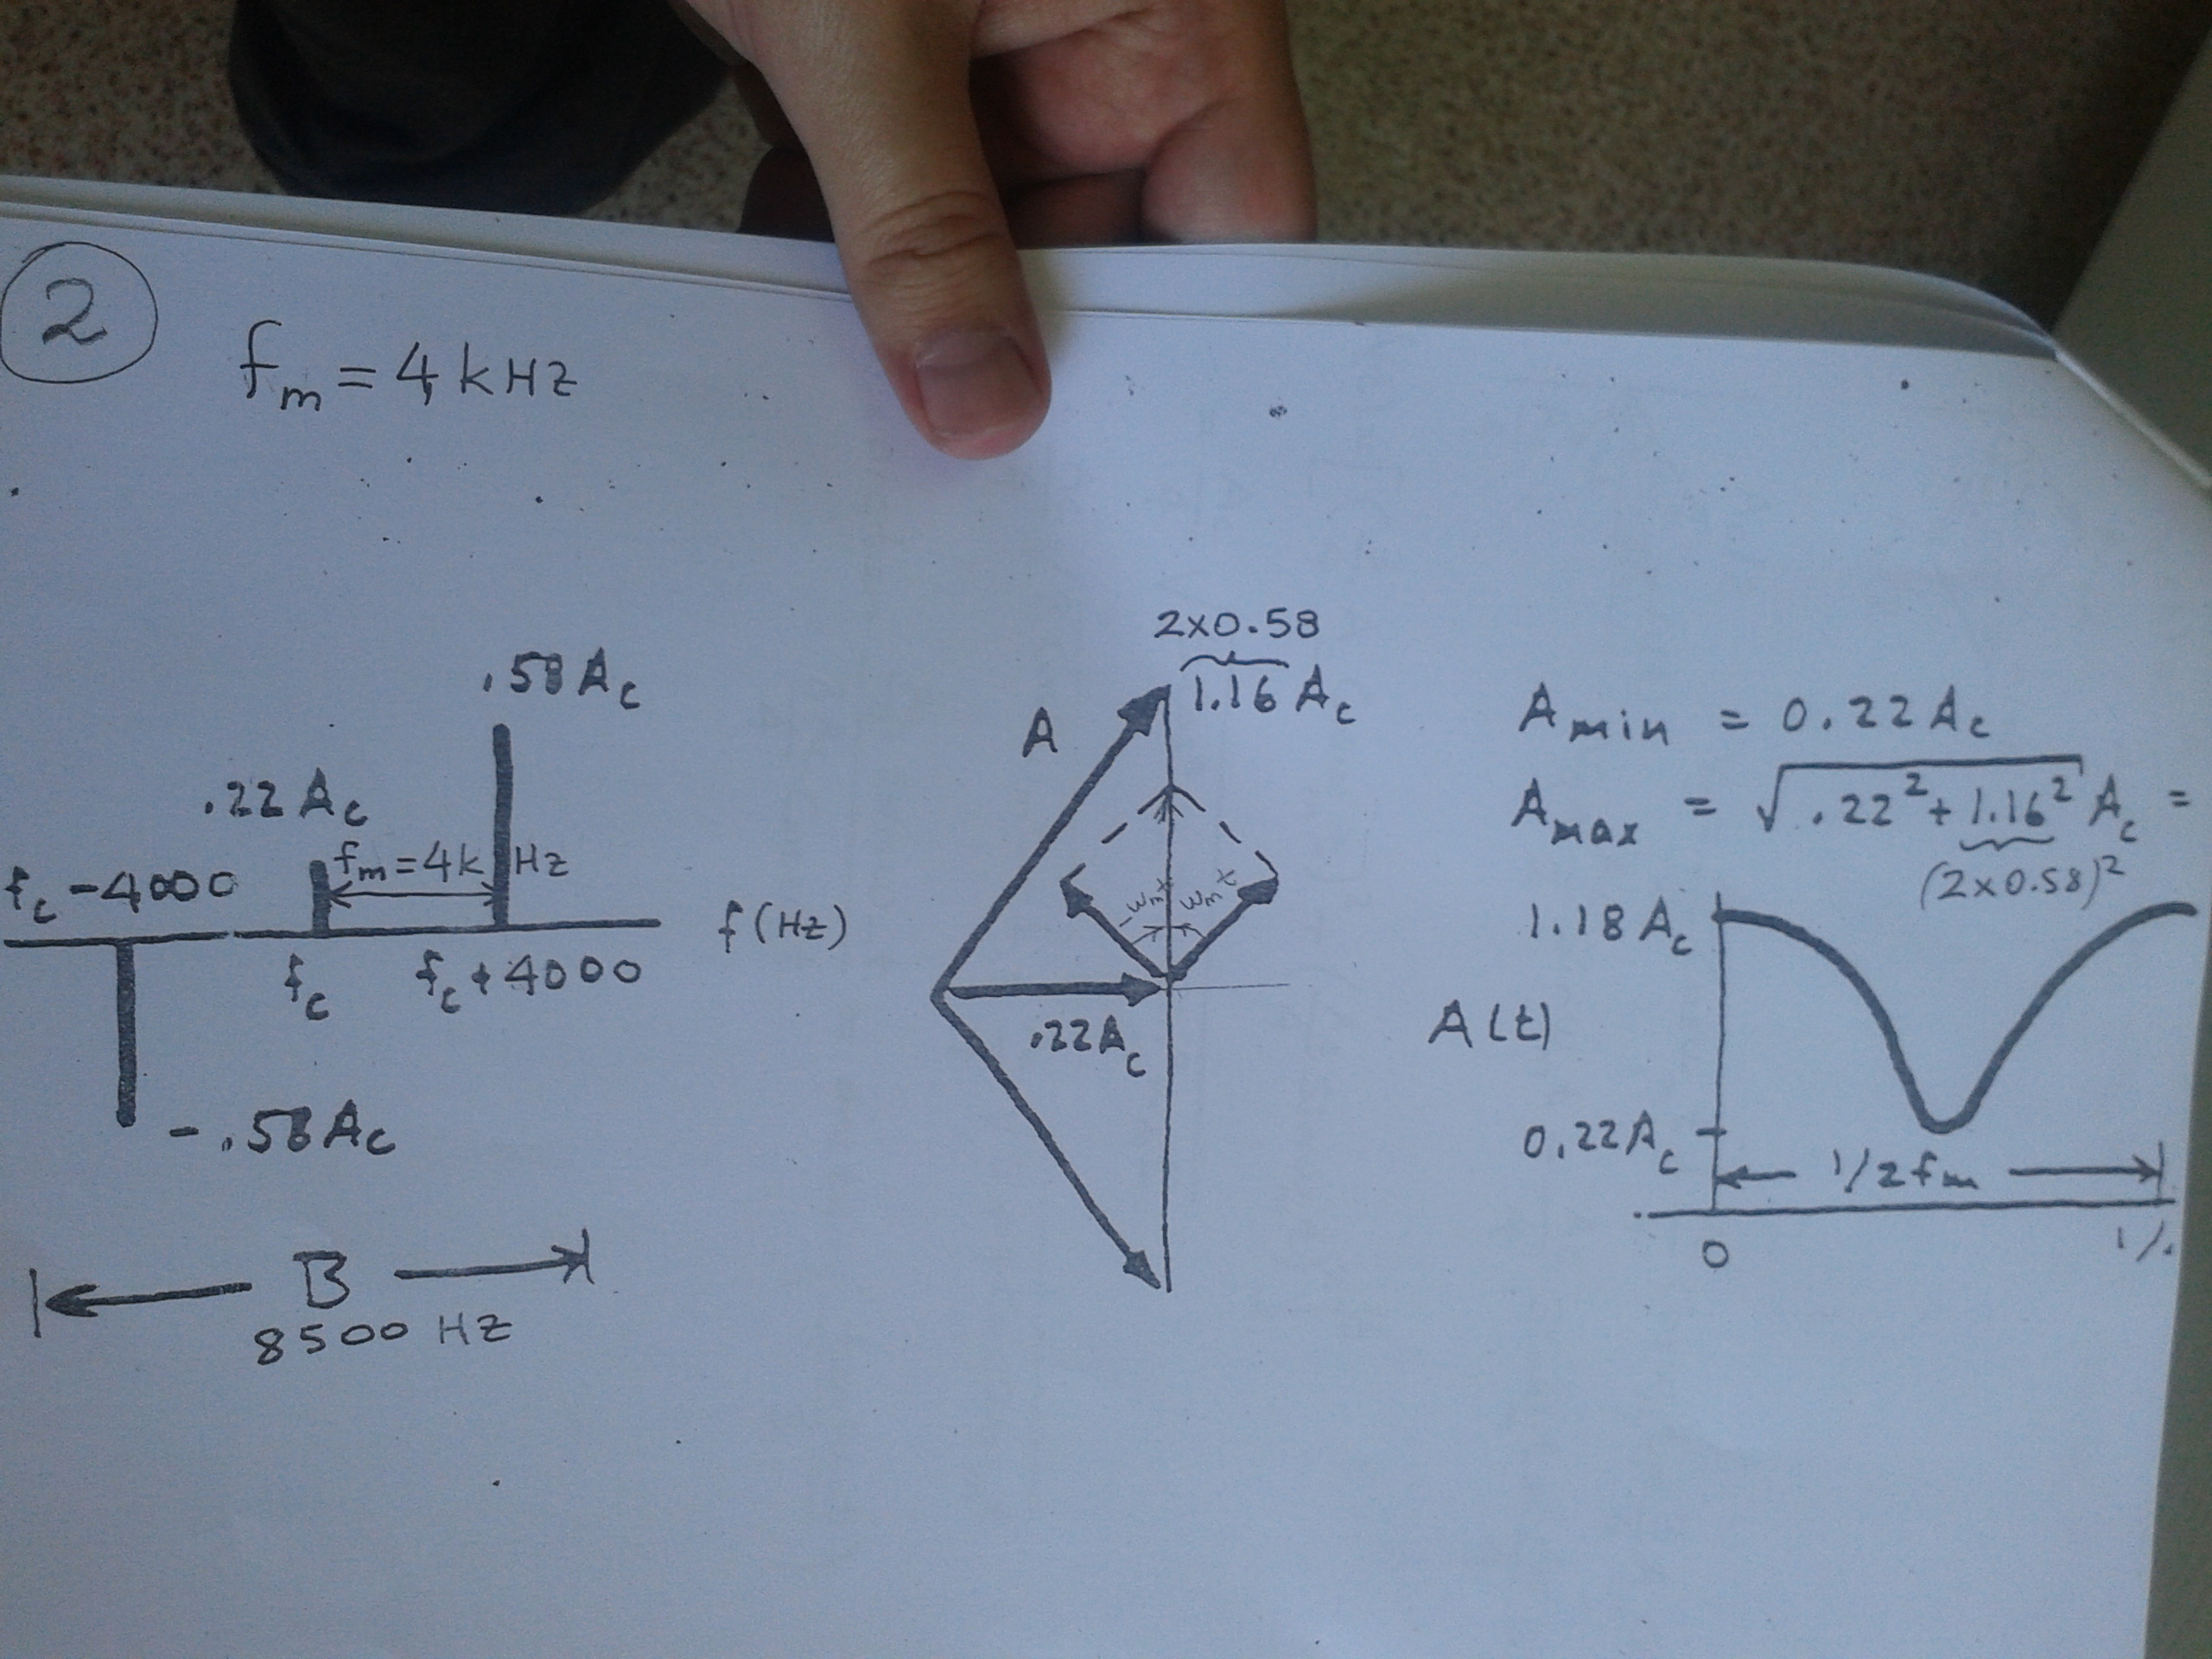 2
fm = 4 kHz
.58 Ac
.22 Ac
fm = 4k Hz
fc - 4000
fc
fc + 4000
f (Hz)
- .58 Ac
B
8500 Hz
2x0.58
1.16 Ac
A
-ωmt
ωmt
.22 Ac
Amin = 0.22 Ac
Amax = √.22² + 1.16² Ac =
(2x0.58)²
1.18 Ac
A(t)
0.22 Ac
1/2fm
0